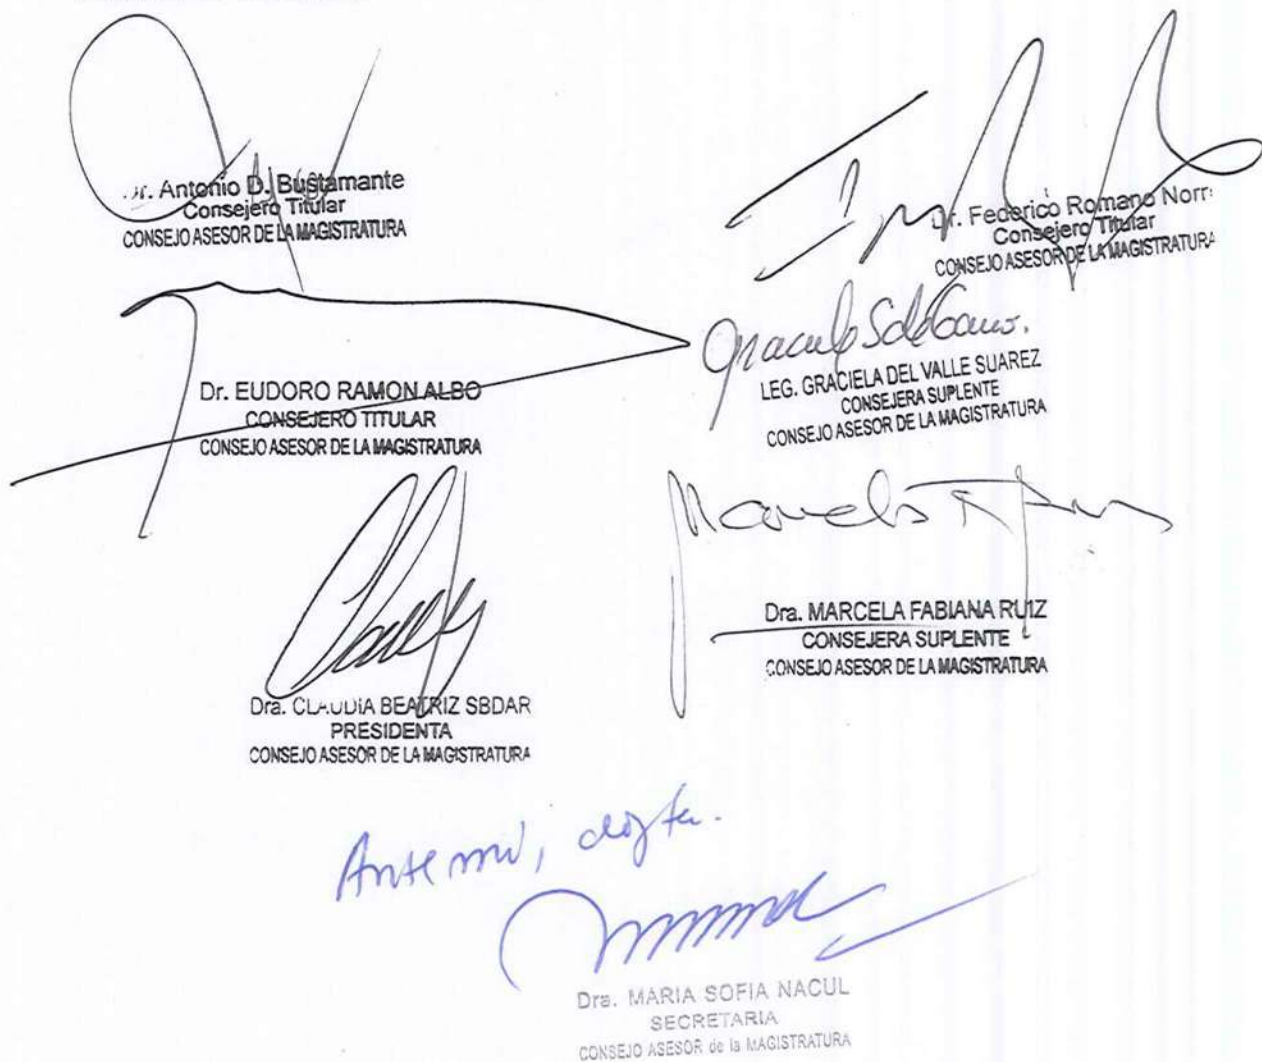 Dr. Antonio D. Bustamante
Consejero Titular
CONSEJO ASESOR DE LA MAGISTRATURA
Dr. Federico Romano Norri
Consejero Titular
CONSEJO ASESOR DE LA MAGISTRATURA
Dr. EUDORO RAMON ALBO
CONSEJERO TITULAR
CONSEJO ASESOR DE LA MAGISTRATURA
LEG. GRACIELA DEL VALLE SUAREZ
CONSEJERA SUPLENTE
CONSEJO ASESOR DE LA MAGISTRATURA
Dra. CLAUDIA BEATRIZ SBDAR
PRESIDENTA
CONSEJO ASESOR DE LA MAGISTRATURA
Dra. MARCELA FABIANA RUIZ
CONSEJERA SUPLENTE
CONSEJO ASESOR DE LA MAGISTRATURA
Ante mi, doy fe.
Dra. MARIA SOFIA NACUL
SECRETARIA
CONSEJO ASESOR de la MAGISTRATURA